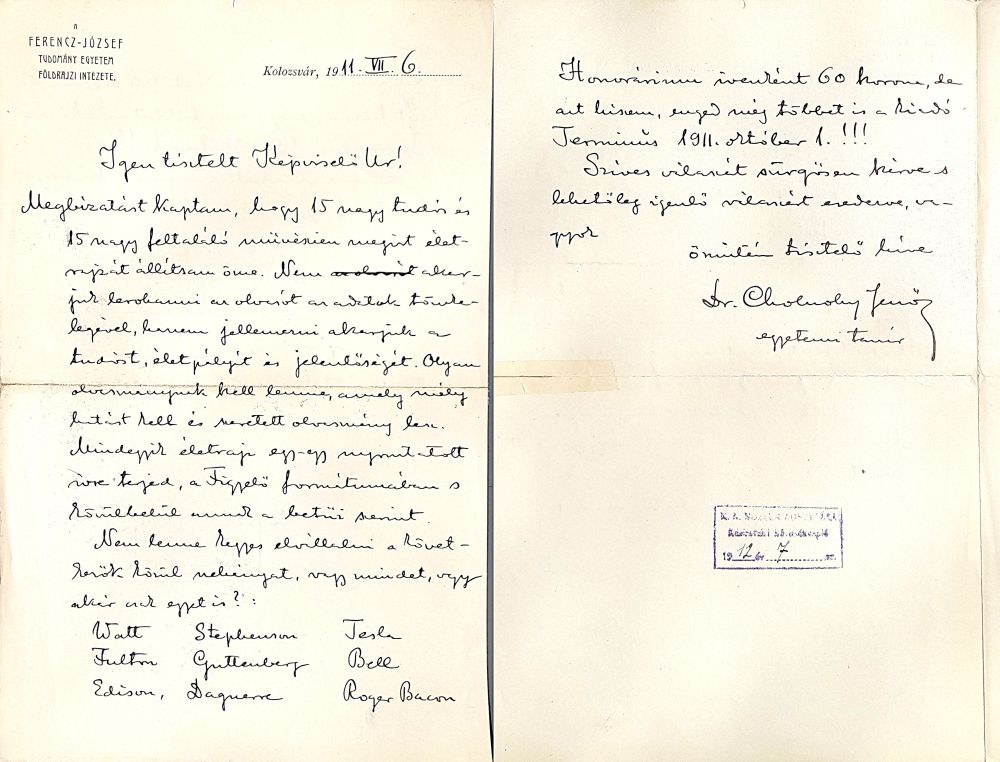 A
FERENCZ-JÓZSEF
TUDOMÁNY EGYETEM
FÖLDRAJZI INTÉZETE.
Kolozsvár, 1911. VII. 6.
Igen tisztelt Képviselő Ur!
Megbizatást kaptam, hogy 15 nagy tudós és
15 nagy feltaláló művésziesen megirt élet-
rajzát állítsam össze. Nem akar-
juk lerohanni az olvasót az adatok töme-
legével, hanem jellemezni akarjuk a
tudóst, életpályáját és jelentőségét. Olyan
olvasmánynak kell lennie, amely mély
hatást kelt és szeretett olvasmány lesz.
Mindegyik életrajz egy-egy nyomtatott
ívre terjed, a Figyelő formátumában s
körülbelül annak a betűi szerint.
Nem lenne kegyes elvállalni a követ-
kezők közül nehányat, vagy mindet, vagy
akár csak egyet is? :
Watt Stephenson Tesla
Fulton Guttenberg Bell
Edison, Daguerre Roger Bacon
Honorárium ivenként 60 korona, de
azt hiszem, enged még többet is a kiadó
Terminus 1911. október 1. !!!
Szives válaszát sürgősen kérve s
lehetőleg igenlő válaszért esedezve, va-
gyok
őszintén tisztelő híve
Dr. Cholnoky Jenő
egyetemi tanár
1912 7